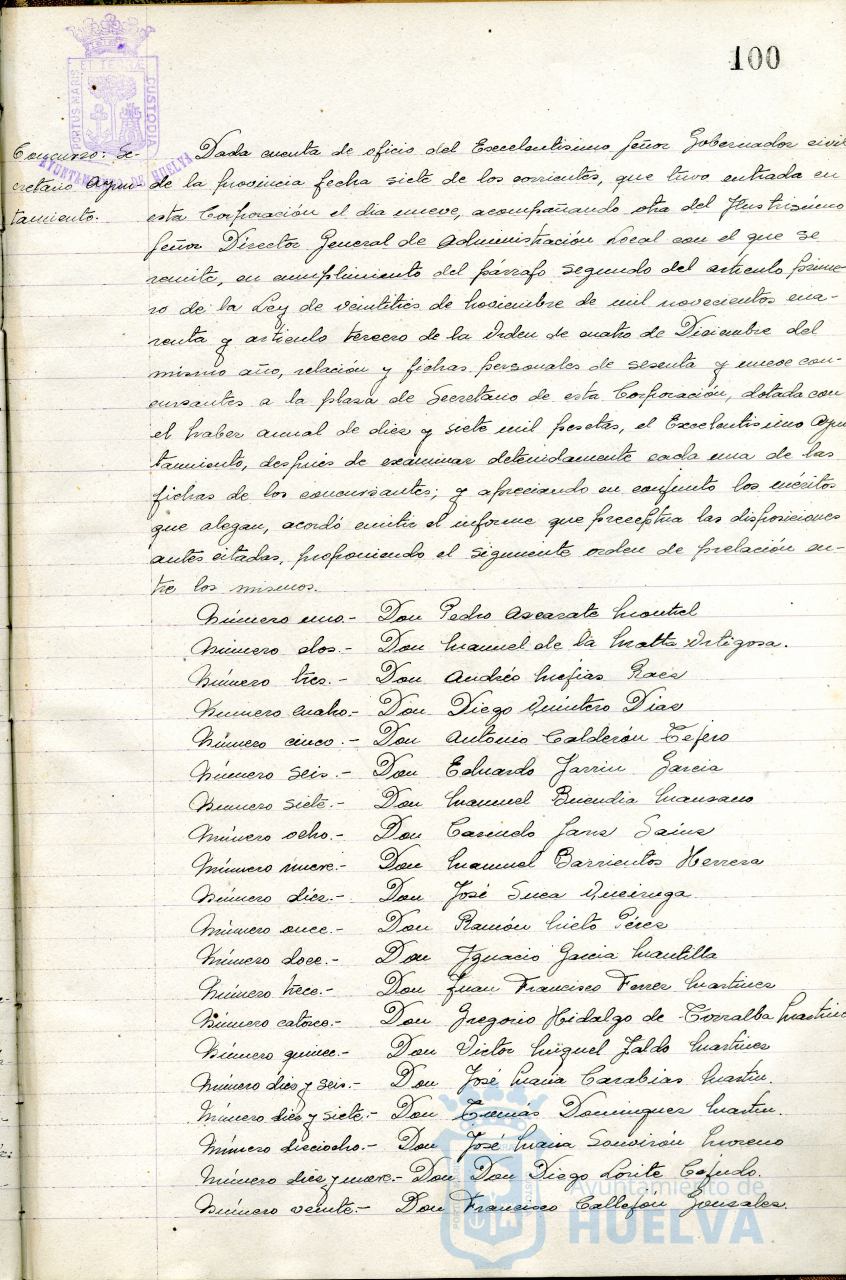 100
PORTUS MARIS
ET TERRÆ
CUSTODIA
AYUNTAMIENTO DE HUELVA
Concurso: Se-
cretario Ayun-
tamiento.
Dada cuenta de oficio del Excelentisimo Señor Gobernador civil
de la provincia fecha siete de los corrientes, que tuvo entrada en
esta Corporación el dia nueve, acompañando otra del Ilustrisimo
Señor Director General de Administración Local con el que se
remite, en cumplimiento del párrafo segundo del articulo prime-
ro de la Ley de veintitrés de noviembre de mil novecientos cua-
renta y articulo tercero de la Orden de cuatro de Diciembre del
mismo año, relación y fichas personales de sesenta y nueve con-
cursantes a la plaza de Secretario de esta Corporación, dotada con
el haber anual de diez y siete mil pesetas, el Excelentisimo Ayun
tamiento, después de examinar detenidamente cada una de las
fichas de los concursantes; y apreciando en conjunto los méritos
que alegan, acordó emitir el informe que preceptua las disposiciones
antes citadas, proponiendo el siguiente orden de prelación en-
tre los mismos.
Número uno.- Don Pedro Azcarate Montiel
Número dos.- Don Manuel de la Matta Ortigosa.
Número tres.- Don Andrés Mejias Raes
Número cuatro.- Don Diego Quintero Dias
Número cinco.- Don Antonio Calderón Tejero
Número seis.- Don Eduardo Jarrin Garcia
Número siete.- Don Manuel Buendia Manzano
Número ocho.- Don Sainz
Número nueve.- Don Manuel Barrientos Herrera
Número diez.- Don José Queiruga
Número once.- Don Ramón Nieto Pérez
Número doce.- Don Ignacio Garcia Mantilla
Número trece.- Don Juan Francisco Ferrer Martinez
Número catorce.- Don Gregorio Hidalgo de Torralba Martine
Número quince.- Don Victor Miguel Jaldo Martinez
Número diez y seis.- Don José Maria Carabias Martin.
Número diez y siete.- Don Tomás Dominguez Martin.
Número dieciocho.- Don José Maria Souvirón Moreno
Número diez y nueve.- Don Don Diego Lorite Cejudo.
Número veinte.- Don Francisco Callejón Gonzales.
Ayuntamiento de
HUELVA